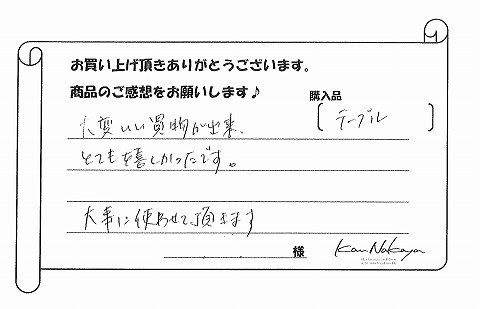 お買い上げ頂きありがとうございます。
商品のご感想をお願いします♪
購入品
〔テーブル〕
大変いい買物が出来、
とても嬉しかったです。
大事に使わせて頂きます
様
Kan Nakaya